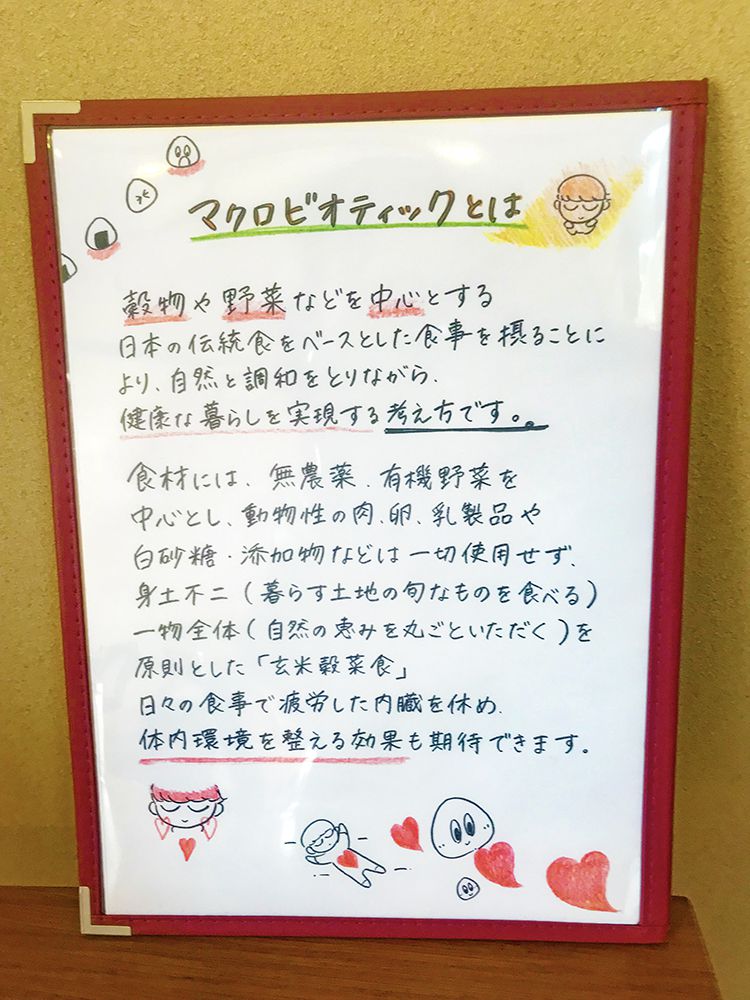 マクロビオティックとは
穀物や野菜などを中心とする
日本の伝統食をベースとした食事を摂ることに
より、自然と調和をとりながら、
健康な暮らしを実現する考え方です。
食材には、無農薬、有機野菜を
中心とし、動物性の肉、卵、乳製品や
白砂糖・添加物などは一切使用せず、
身土不二(暮らす土地の旬なものを食べる)
一物全体(自然の恵みを丸ごといただく)を
原則とした「玄米穀菜食」
日々の食事で疲労した内臓を休め、
体内環境を整える効果も期待できます。